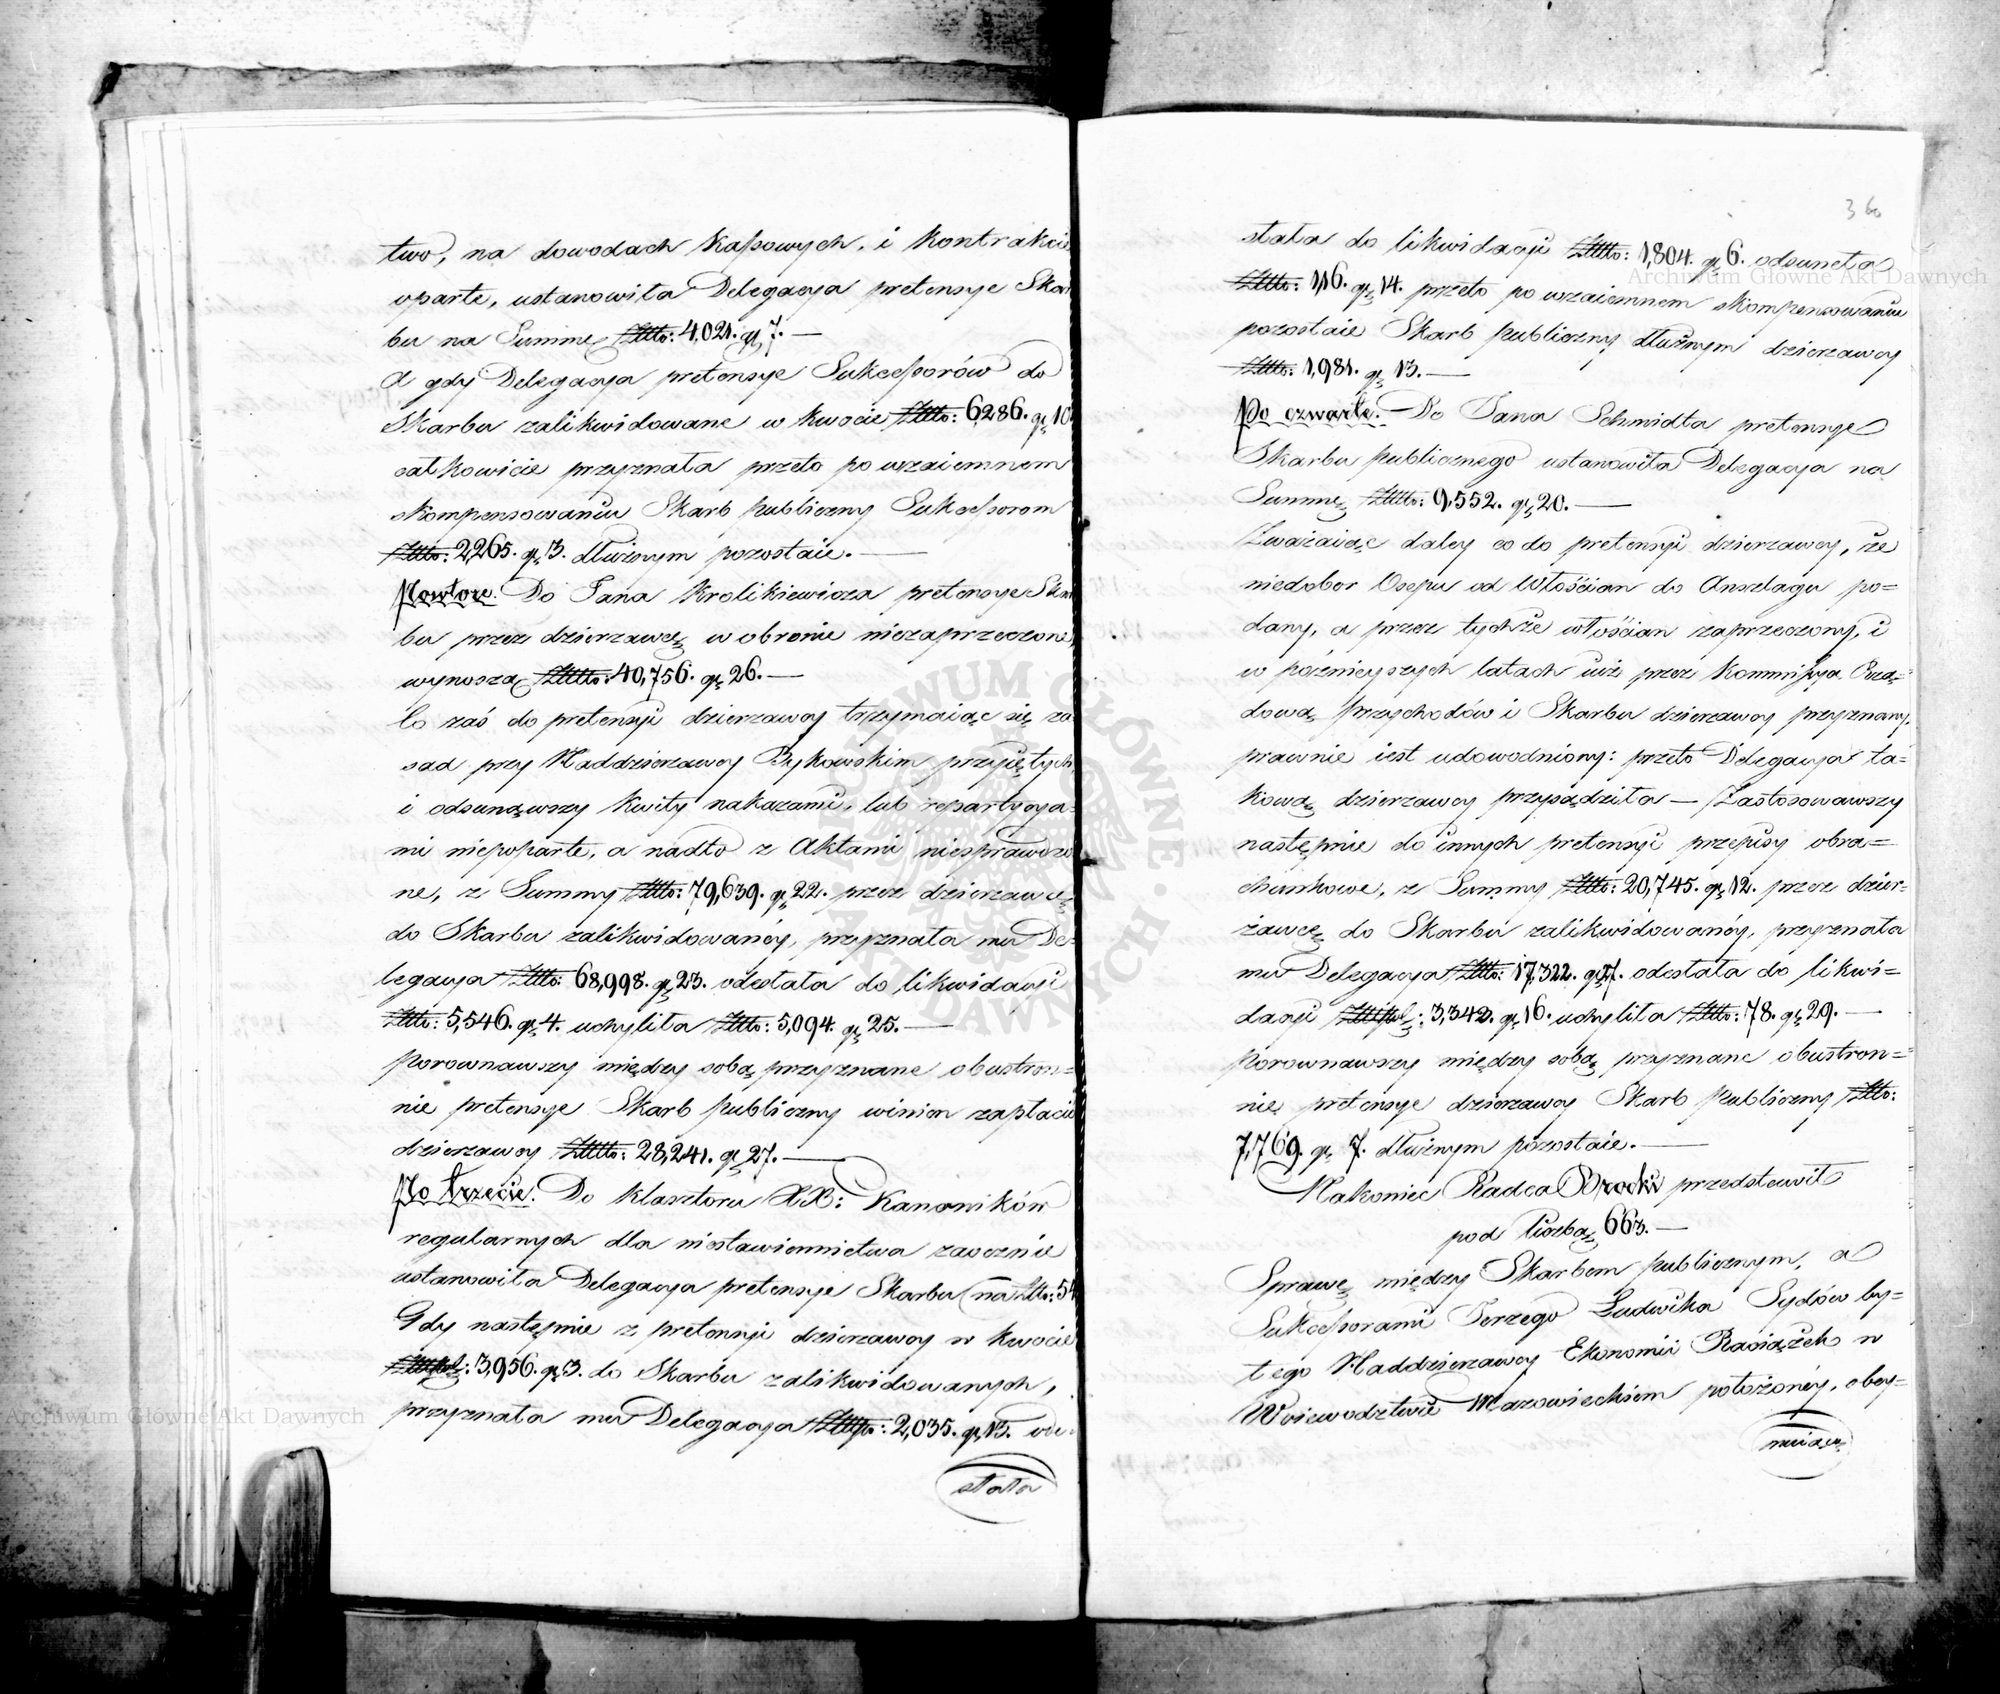 two, na dowodach Kassowych, i Kontrakcie
oparte, ustanowiła Delegacya pretensye Skar
bu na Summę Złto: 4,021. gr 7. —
A gdy Delegacya pretensye Sukcessorów do
Skarbu zalikwidowane w kwocie Złto: 6,286. gr 10
całkowicie przyznała przeto po wzaiemnem
skompensowaniu Skarb publiczny Sukcessorom
Złto: 2,265. gr 3. dłużnym pozostaie. —
Powtore. Do Jana Krolikiewicza pretensye Skar
bu przez dzierzawcę w obronie niezaprzeczone,
wynoszą Złto: 40,756. gr 26. —
Co zaś do pretensyi dzierzawcy trzymaiąc się za
sad przy Naddzierzawcy Bykowskim przyiętych
i odsunąwszy kwity nakazami, lub repartycya=
mi niepoparte, a nadto z Aktami niesprawdzo
ne, z Summy Złto: 79,639. gr 22. przez dzierzawcę
do Skarbu zalikwidowanéy, przyznała mu De=
legacya Złto: 68,998. gr 23. odesłała do likwidacyi
Złto: 5,546. gr 4. uchyliła Złto: 5,094. gr 25. —
Porownawszy między sobą przyznane obustron=
nie pretensye Skarb publiczny winien zapłacić
dzierzawcy Złto: 28,241. gr 27. —
Po trzecie. Do klasztoru XX: Kanoników
regularnych dla niestawiennictwa zaocznie
ustanowiła Delegacya pretensye Skarbu na Złto: 54
Gdy następnie z pretensyi dzierzawcy w kwocie
Złtpol: 3,956. gr 3. do Skarbu zalikwidowanych,
przyznała mu Delegacya Złtp: 2,035. gr 13. ode=
słała
360
słała do likwidacyi Złto: 1,804. gr 6. odsunęła
Złto: 116. gr 14. przeto po wzaiemnem skompensowaniu
pozostaie Skarb publiczny dłużnym dzierzawcy
Złto: 1,981. gr 13. —
Po czwarte. — Do Jana Schmidta pretensye
Skarbu publicznego ustanowiła Delegacya na
Summę Złto: 9,552. gr 20. —
Zważaiąc daley co do pretensyi dzierzawcy, że
niedobor Osepu od Włościan do Anszlagu po=
dany, a przez tychże włościan zaprzeczony, i
w poźnieyszych latach iuż przez Kommissya Rzą=
dową Przychodów i Skarbu dzierzawcy przyznany,
prawnie iest udowodniony: przeto Delegacya ta=
kową dzierzawcy przysądziła — Zastosowawszy
następnie do innych pretensyi przepisy obra=
chunkowe, z Summy Złto: 20,745. gr 12. przez dzier=
żawcę do Skarbu zalikwidowanéy, przyznała
mu Delegacya Złto: 17,322. gr 27. odesłała do likwi=
dacyi Złtpol: 3,343. gr 16. uchyliła Złto: 78. gr 29. —
Porownawszy między sobą przyznane obustron=
nie pretensye dzierzawcy Skarb Publiczny Złto:
7,769. gr 7. dłużnym pozostaie. —
Nakoniec Radca Brocki przedstawił
pod liczbą 663. —
Sprawę między Skarbem publicznym, a
Sukcessorami Jerzego Ludwika Sydów by=
łego Naddzierzawcy Ekonomii Raciążek w
Woiewodztwie Mazowieckiem położonéy, obey=
muiącą